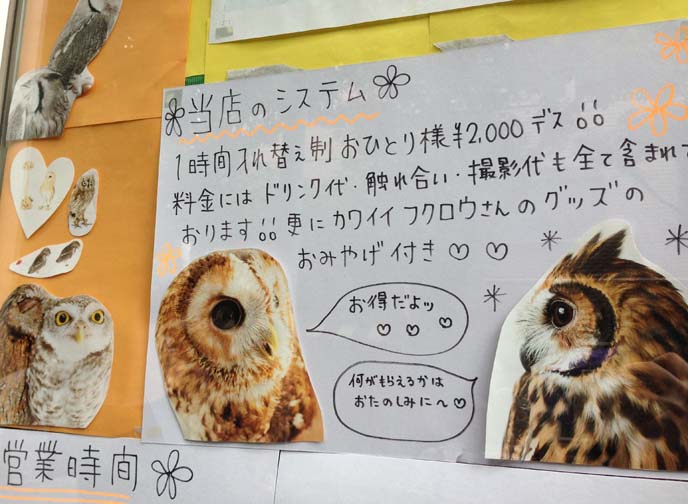 当店のシステム
1時間入れ替え制 おひとり様¥2,000デス
料金には ドリンク代・触れ合い・撮影代も全て含まれて
おります 更に カワイイ フクロウさんのグッズの
おみやげ付き♡♡
お得だよッ
♡♡♡
何がもらえるかは
おたのしみに〜♡
営業時間